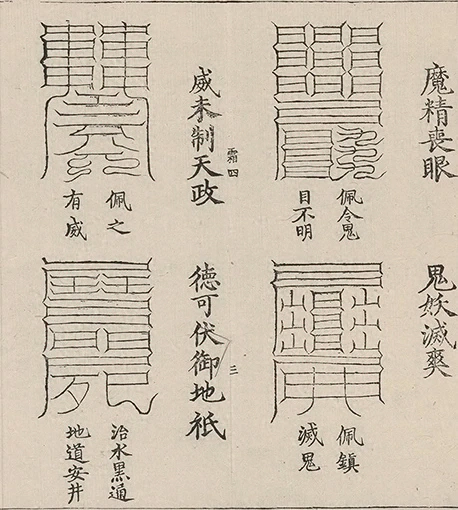 魔精喪眼
佩令鬼
目不明
鬼妖滅爽
佩鎮
滅鬼
霜四
三
威未制天政
佩之
有威
德可伏御地祇
治水黑通
地道安井